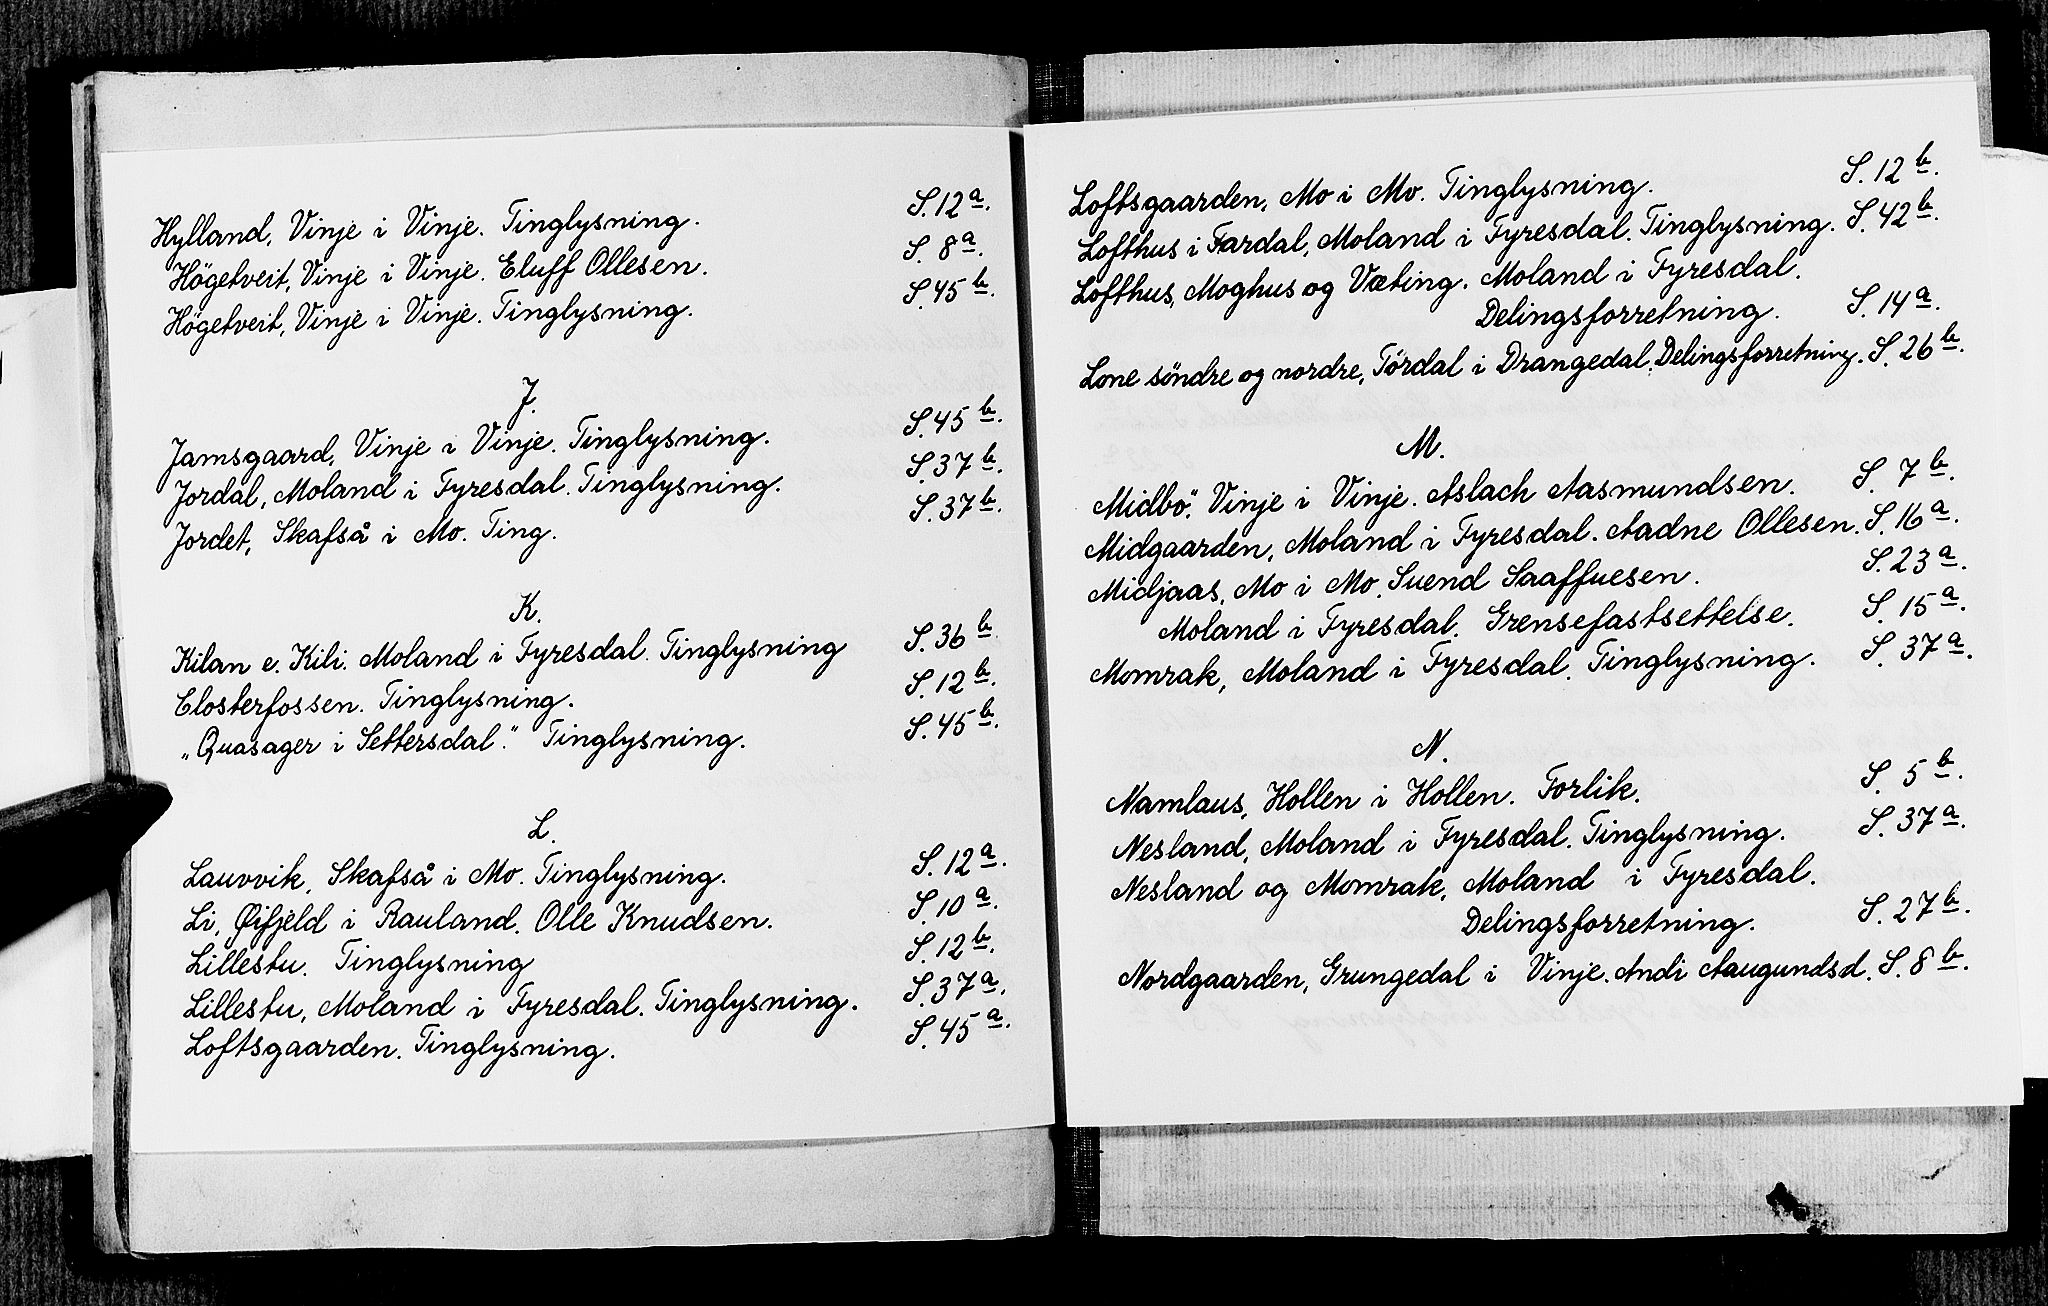 Hylland, Vinje i Vinje. Tinglysning. S. 12 a.
Högetveit, Vinje i Vinje. Eluff Ollesen. S. 8 a.
Högetveit, Vinje i Vinje. Tinglysning. S. 45 b.
J.
Jamsgaard, Vinje i Vinje. Tinglysning. S. 45 b.
Jordal, Moland i Fyresdal. Tinglysning. S. 37 b.
Jordet, Skafså i Mo. Ting. S. 37 b.
K.
Kilan e. Kili. Moland i Fyresdal. Tinglysning S. 36 b.
Closterfossen. Tinglysning. S. 12 b.
„Quasager i Settersdal." Tinglysning. S. 45 b.
L.
Lauvvik, Skafså i Mo. Tinglysning. S. 12 a.
Li, Øifjeld i Rauland. Olle Knudsen. S. 10 a.
Lillestu. Tinglysning S. 12 b.
Lillestu, Moland i Fyresdal. Tinglysning. S. 37 a.
Loftsgaarden. Tinglysning. S. 45 a.
Loftsgaarden, Mo i Mo. Tinglysning. S. 12 b.
Lofthus i Fardal, Moland i Fyresdal. Tinglysning. S. 42 b.
Lofthus, Moghus og Væting. Moland i Fyresdal.
Delingsforretning. S. 14 a.
Lone söndre og nordre, Tördal i Drangedal. Delingsforretning. S. 26 b.
M.
Midbö". Vinje i Vinje. Aslach Aasmundsen. S. 7 b.
Midgaarden, Moland i Fyresdal. Aadne Ollesen. S. 16 a.
Midjaas, Mo i Mo. Suend Saaffuesen. S. 23 a.
Moland i Fyresdal. Grensefastsettelse. S. 15 a.
Momrak, Moland i Fyresdal. Tinglysning. S. 37 a.
N.
Namlaus, Hollen i Hollen. Forlik. S. 5 b.
Nesland, Moland i Fyresdal. Tinglysning. S. 37 a.
Nesland og Momrak, Moland i Fyresdal.
Delingsforretning. S. 27 b.
Nordgaarden, Grungedal i Vinje. Andi Aaugundsd. S. 8 b.